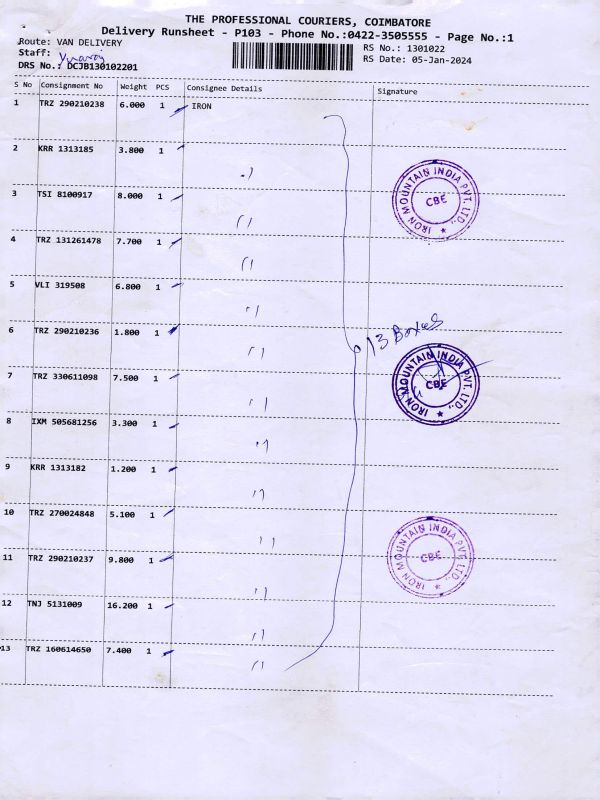 THE PROFESSIONAL COURIERS, COIMBATORE
Delivery Runsheet - P103 - Phone No.:0422-3505555 - Page No.:1
Route: VAN DELIVERY
RS No.: 1301022
Staff:
RS Date: 05-Jan-2024
DRS No.: DCJB130102201
S No Consignment No Weight PCS Consignee Details Signature
1 TRZ 290210238 6.000 1 IRON
2 KRR 1313185 3.800 1
3 TSI 8100917 8.000 1
4 TRZ 131261478 7.700 1
5 VLI 319508 6.800 1
6 TRZ 290210236 1.800 1
7 TRZ 330611098 7.500 1
8 IXM 505681256 3.300 1
9 KRR 1313182 1.200 1
10 TRZ 270024848 5.100 1
11 TRZ 290210237 9.800 1
12 TNJ 5131009 16.200 1
13 TRZ 160614650 7.400 1
13 Boxes
IRON MOUNTAIN INDIA PVT. LTD.,
CBE
IRON MOUNTAIN INDIA PVT. LTD.,
CBE
IRON MOUNTAIN INDIA PVT. LTD.,
CBE